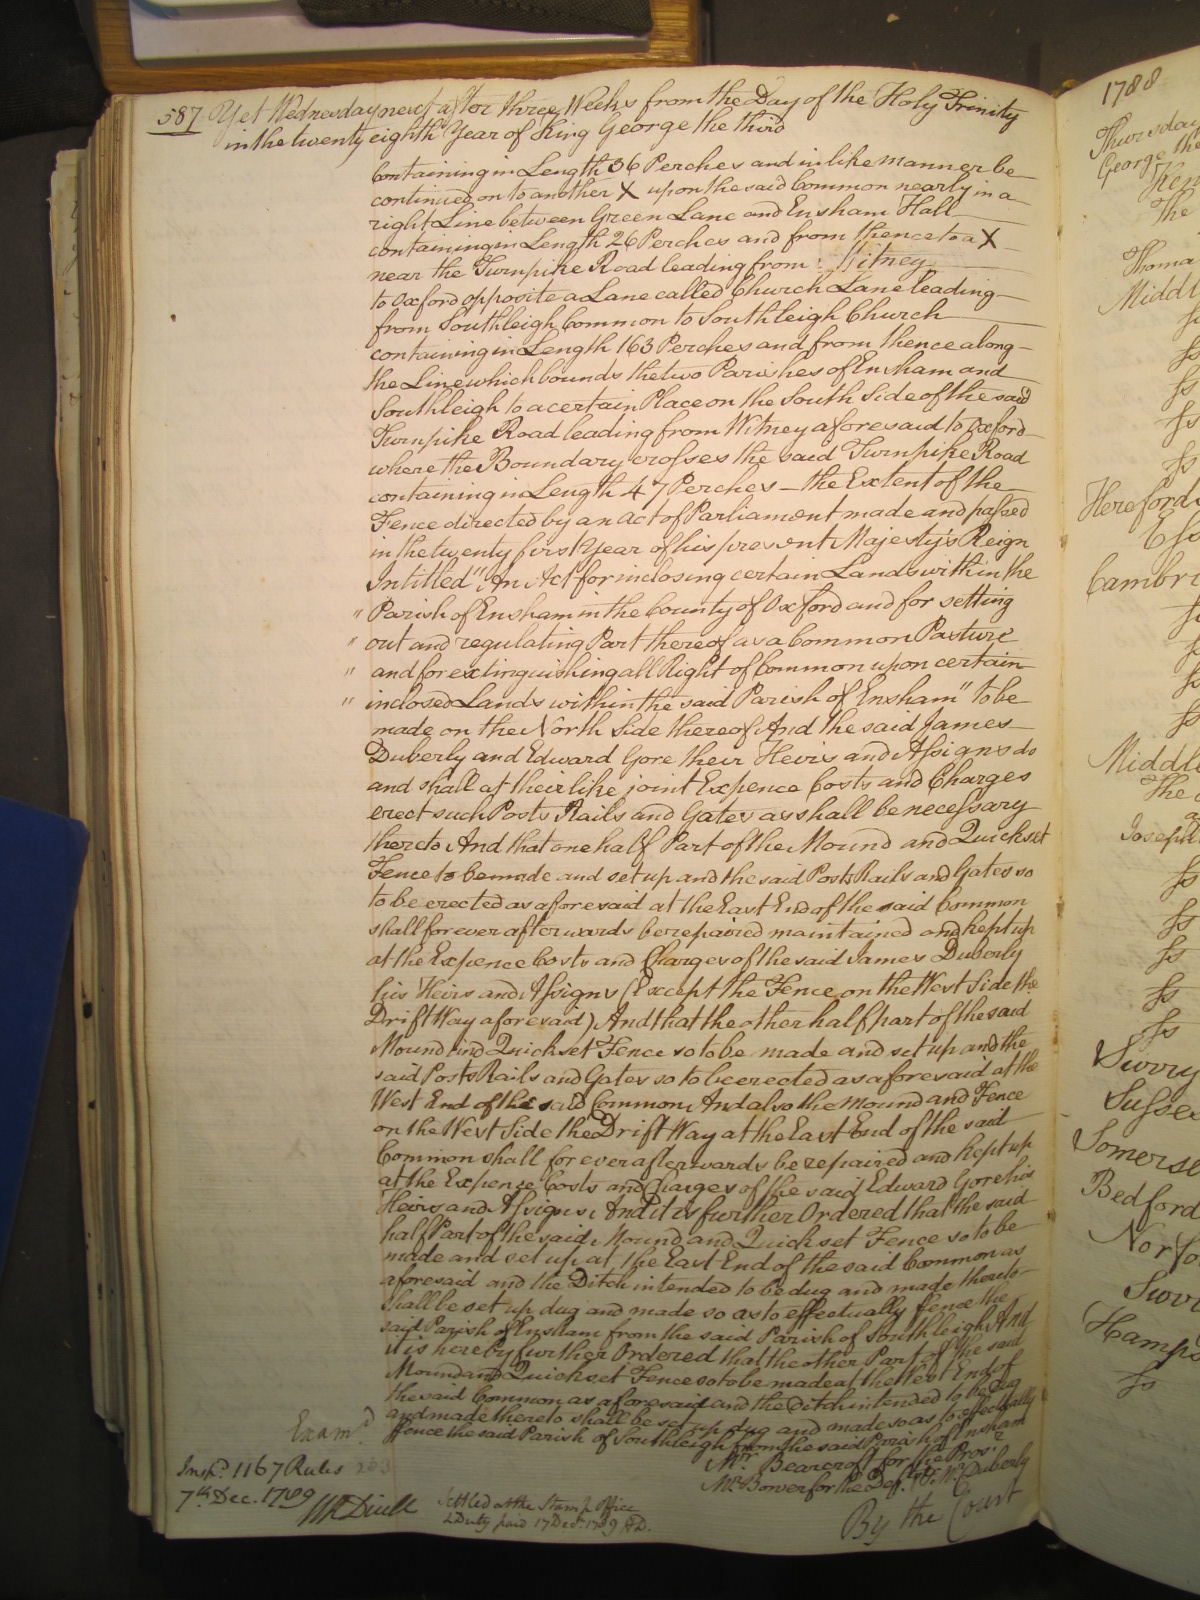 587 Yet Wednesday next after three Weeks from the Day of the Holy Trinity
in the twenty eighth Year of King George the third
containing in Length 36 Perches and in like manner be
continued on to another X upon the said Common nearly in a
right Line between Green Lane and Ensham Hall
containing in Length 26 Perches and from thence to a X
near the Turnpike Road leading from Witney
to Oxford opposite a Lane called Church Lane leading
from Southleigh Common to Southleigh Church
containing in Length 163 Perches and from thence along
the Line which bounds the two Parishes of Ensham and
Southleigh to a certain Place on the South Side of the said
Turnpike Road leading from Witney aforesaid to Oxford
where the Boundary crosses the said Turnpike Road
containing in Length 47 Perches – the Extent of the
Fence directed by an Act of Parliament made and passed
in the twenty first Year of his present Majesty's Reign
Intitled "An Act for inclosing certain Lands within the
" Parish of Ensham in the County of Oxford and for setting
" out and regulating Part thereof as a Common Pasture
" and for extinguishing all Right of Common upon certain
" inclosed Lands within the said Parish of Ensham" to be
made on the North Side thereof And the said James
Duberly and Edward Gore their Heirs and Assigns do
and shall at their like joint Expence Costs and Charges
erect such Posts Rails and Gates as shall be necessary
thereto And that one half Part of the Mound and Quickset
Fence to be made and set up and the said Posts Rails and Gates so
to be erected as aforesaid at the East End of the said Common
shall for ever afterwards be repaired maintained and kept up
at the Expence Costs and Charges of the said James Duberly
his Heirs and Assigns (Except the Fence on the West Side the
Drift Way aforesaid) And that the other half part of the said
Mound and Quickset Fence so to be made and set up and the
said Posts Rails and Gates so to be erected as aforesaid at the
West End of the said Common And also the Mound and Fence
on the West Side the Drift Way at the East End of the said
Common shall for ever afterwards be repaired and kept up
at the Expence Costs and Charges of the said Edward Gore his
Heirs and Assigns And it is further Ordered that the said
half Part of the said Mound and Quickset Fence so to be
made and set up at the East End of the said Common as
aforesaid and the Ditch intended to be dug and made thereto
shall be set up dug and made so as to effectually fence the
said Parish of Ensham from the said Parish of Southleigh And
it is hereby further Ordered that the other Part of the said
Mound and Quickset Fence so to be made at the West End of
the said Common as aforesaid and the Ditch intended to be dug
and made thereto shall be set up dug and made so as to effectually
ffence the said Parish of Southleigh from the said Parish of Ensham
Examd.
Mr. Bearcroft for the Pros.r
Mr. Bower for the Deft.
Duberly
By the Court
Insp.d 1167 Rules 203
7th Dec. 1789
Settled at the Stamp Office
& Duty paid 17 Decr. 1789
1788
Thursday
George the
Ken
The
Thoma
Middl
ss
ss
ss
ss
ss
Herefords
Ess
Cambri
ss
ss
ss
ss
Middle
The
Joseph
ss
ss
ss
ss
ss
Surry
Sussex
Somerse
Bedford
Norfo
Surr
Hamps
ss